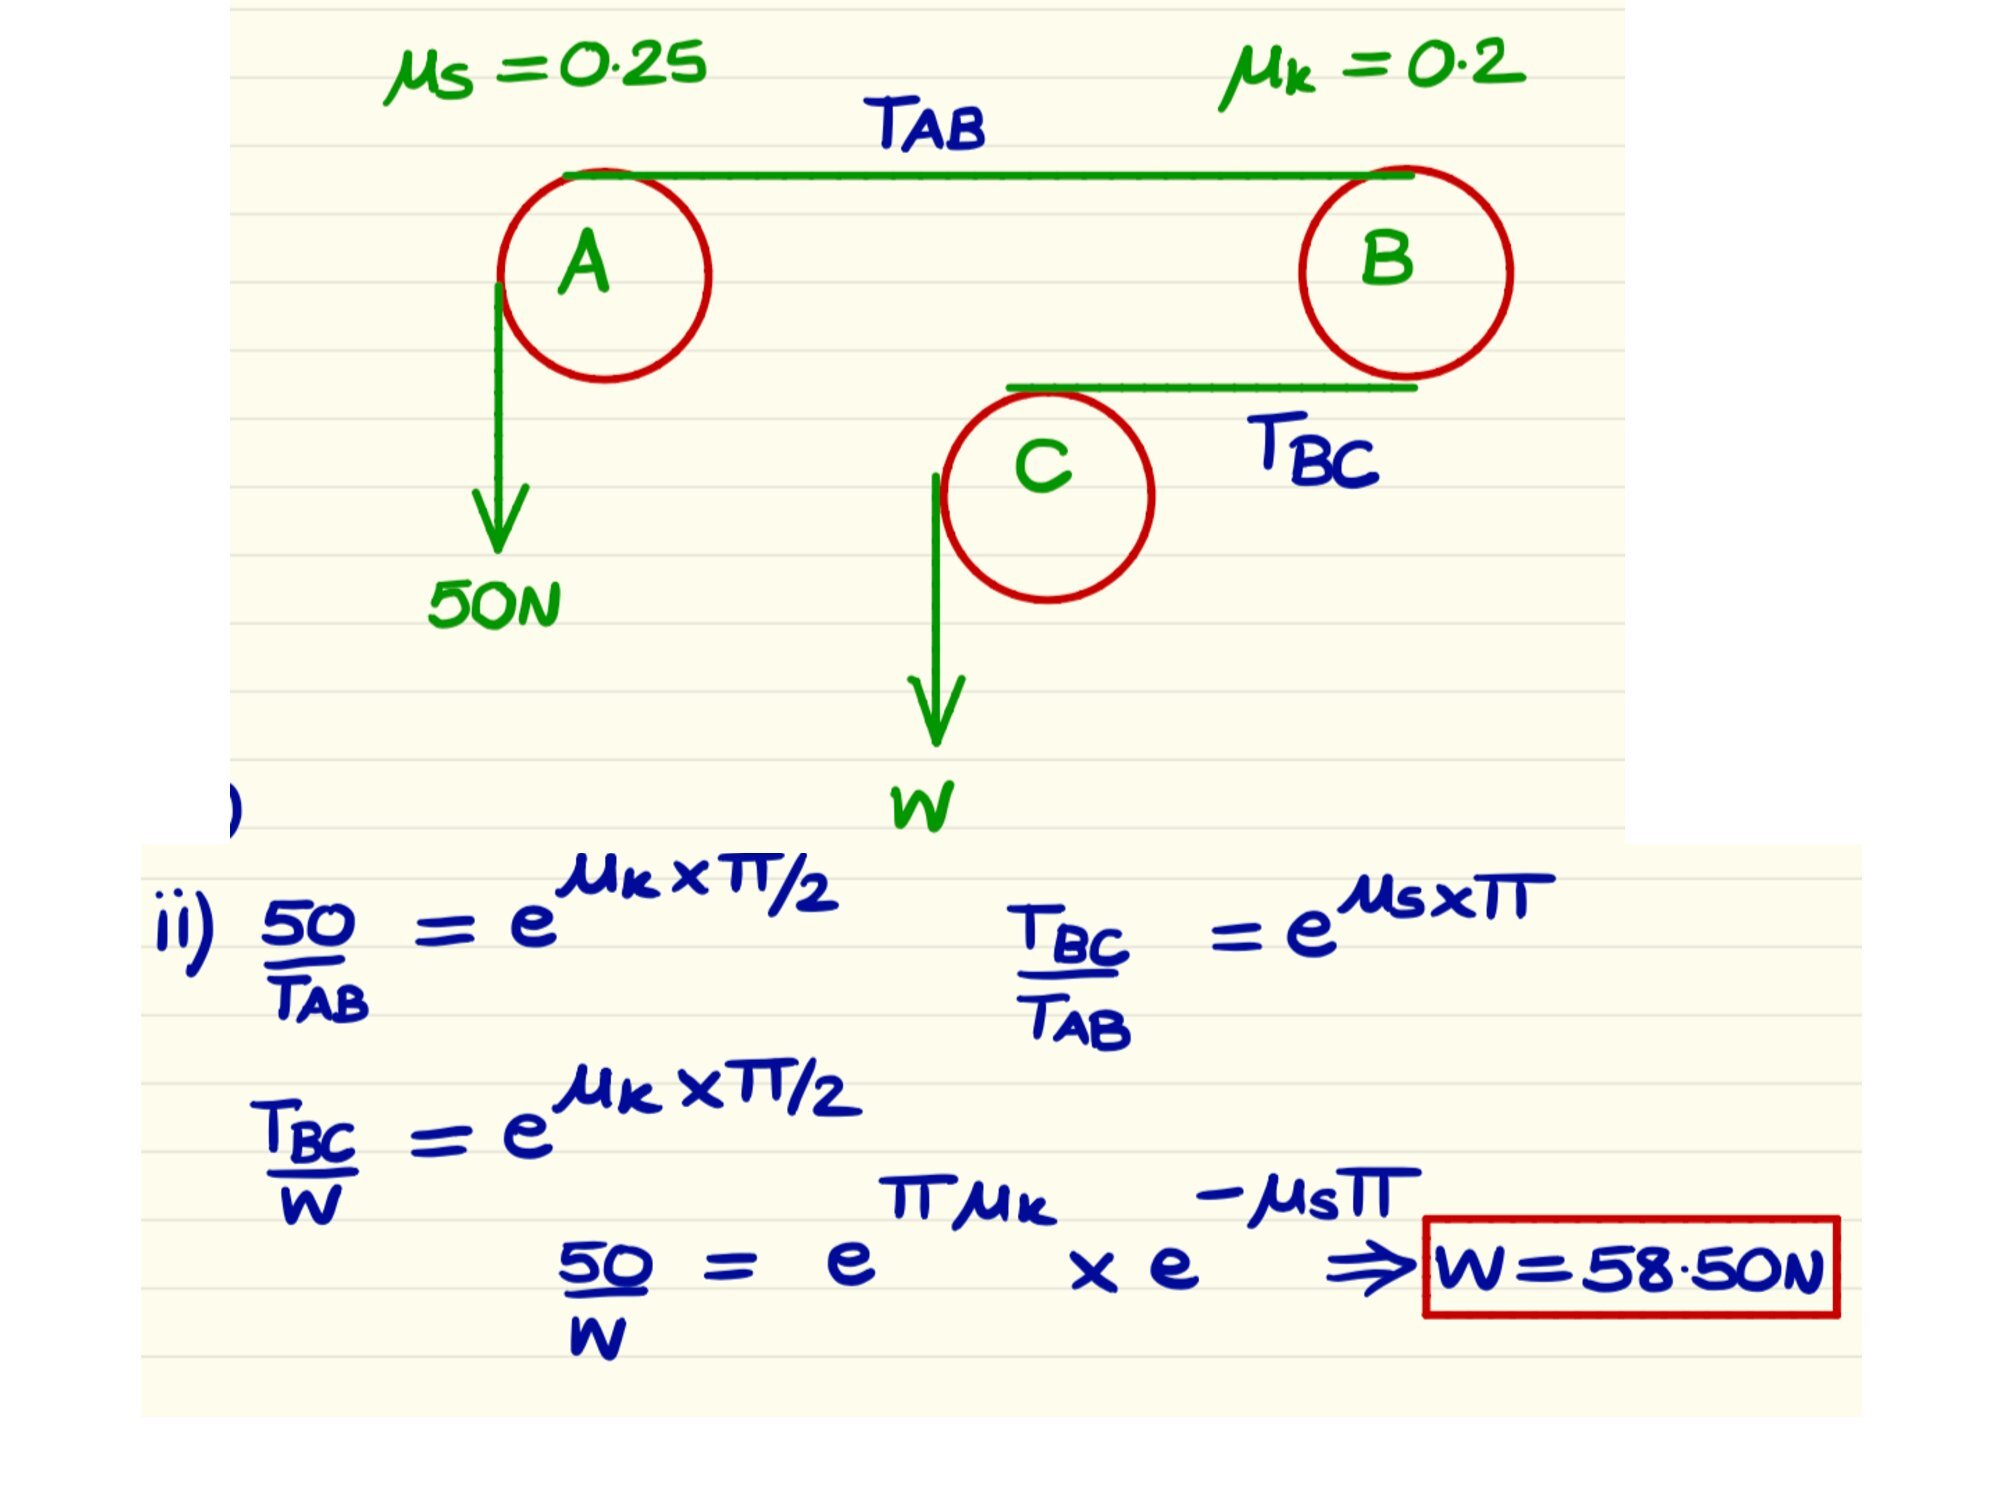 μs = 0.25 μk = 0.2
TAB
A B
C TBC
50N
W
)
ii) 50/TAB = e^μk×π/2 TBC/TAB = e^μs×π
TBC/W = e^μk×π/2
50/W = e^πμk × e^-μsπ ⇒ W = 58.50N